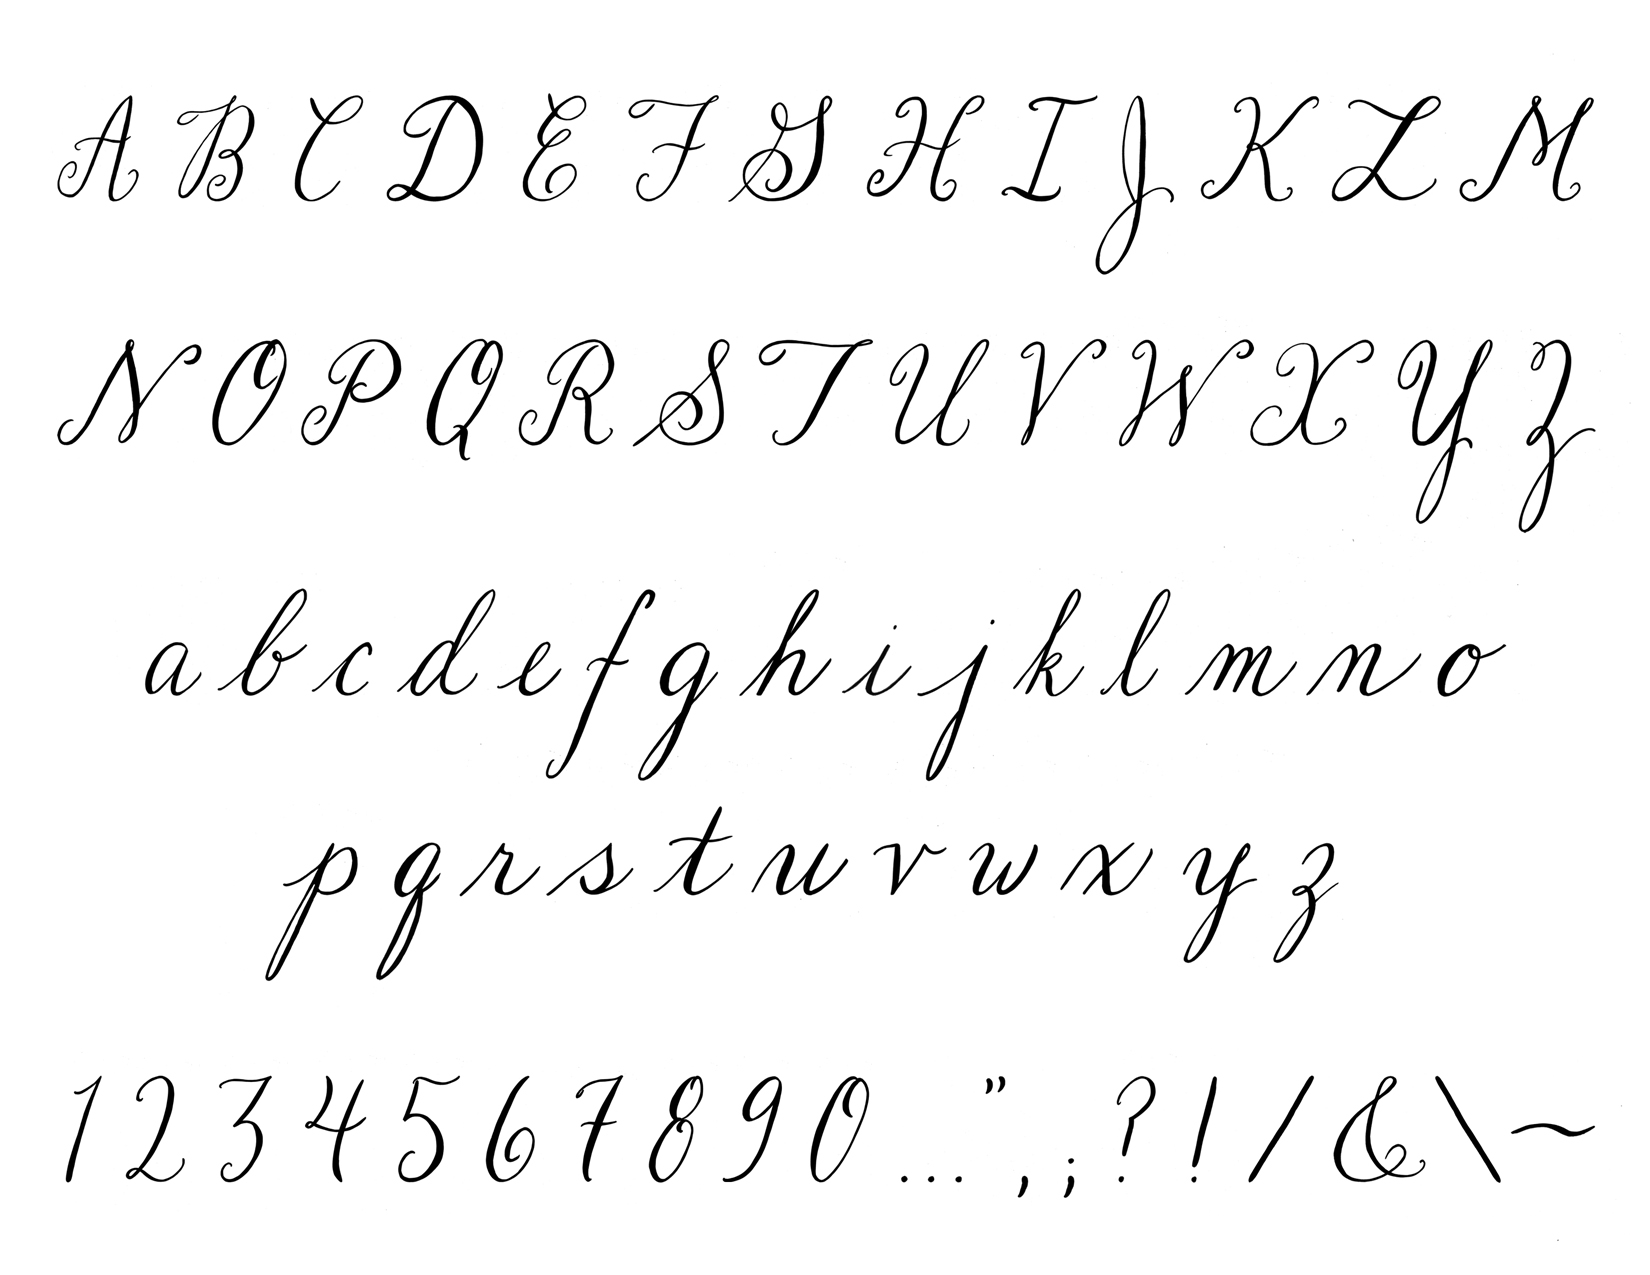 A B C D E F G H I J K L M
N O P Q R S T U V W X Y Z
a b c d e f g h i j k l m n o
p q r s t u v w x y z
1 2 3 4 5 6 7 8 9 0 ... ” , ; ? ! / & \ ~